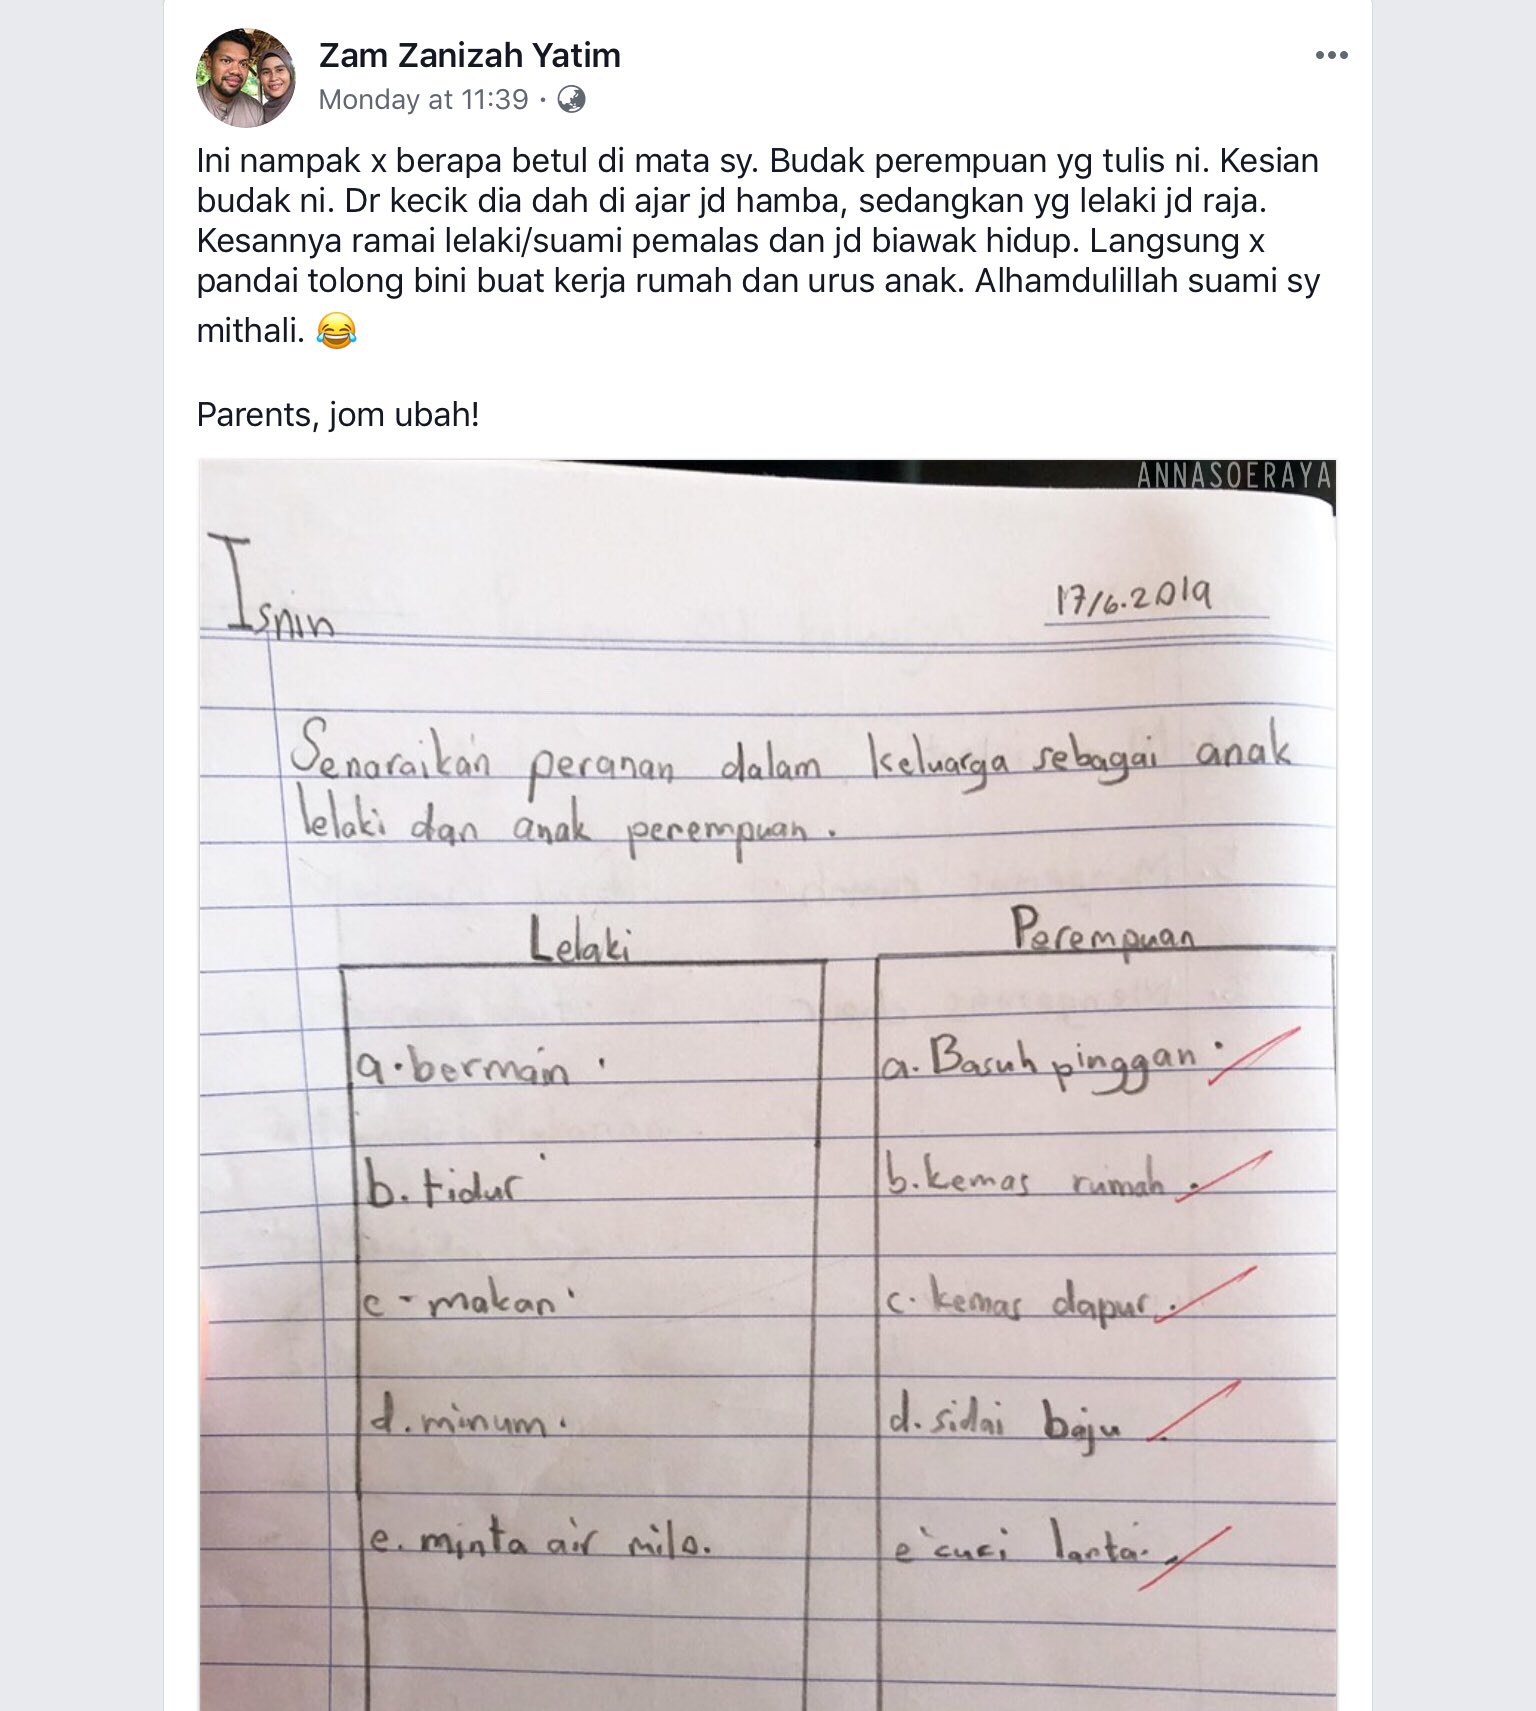 Zam Zanizah Yatim
Monday at 11:39 ·
Ini nampak x berapa betul di mata sy. Budak perempuan yg tulis ni. Kesian
budak ni. Dr kecik dia dah di ajar jd hamba, sedangkan yg lelaki jd raja.
Kesannya ramai lelaki/suami pemalas dan jd biawak hidup. Langsung x
pandai tolong bini buat kerja rumah dan urus anak. Alhamdulillah suami sy
mithali. 😂
Parents, jom ubah!
ANNASOERAYA
Isnin
17/6.2019
Senaraikan peranan dalam keluarga sebagai anak
lelaki dan anak perempuan.
Lelaki
a. bermain.
b. tidur
c - makan
d. minum.
e. minta air milo.
Perempuan
a. Basuh pinggan.
b. kemas rumah.
c. kemas dapur.
d. sidai baju.
e cuci lantai.